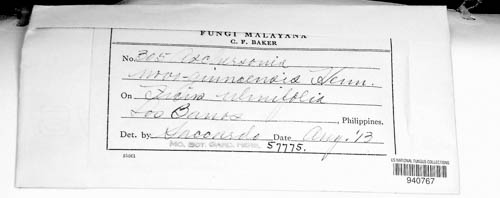 FUNGI MALAYANA
C. F. BAKER
No. 305 Aschersonia
novo-guineensis Henn.
On Ficus ulmifolia
Los Banos, Philippines.
Det. by Saccardo Date Aug. '13
MO. BOT. GARD. HERB. 57775.
US NATIONAL FUNGUS COLLECTIONS
940767